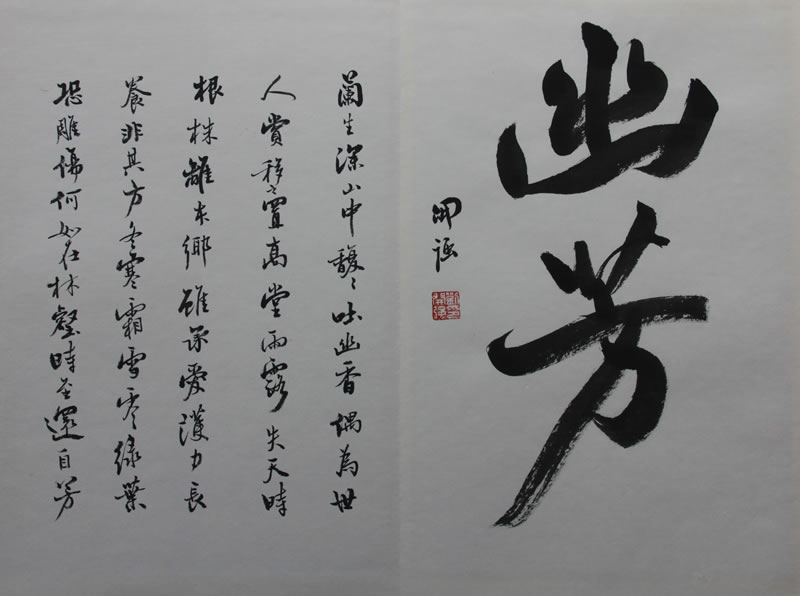 幽芳
蘭生深山中馥〻吐幽香偶為世
人賞移之置高堂雨露失天時
根株離本鄉雖承愛護力長
養非其方冬寒霜雪零綠葉
恐雕傷何如在林壑時至還自芳